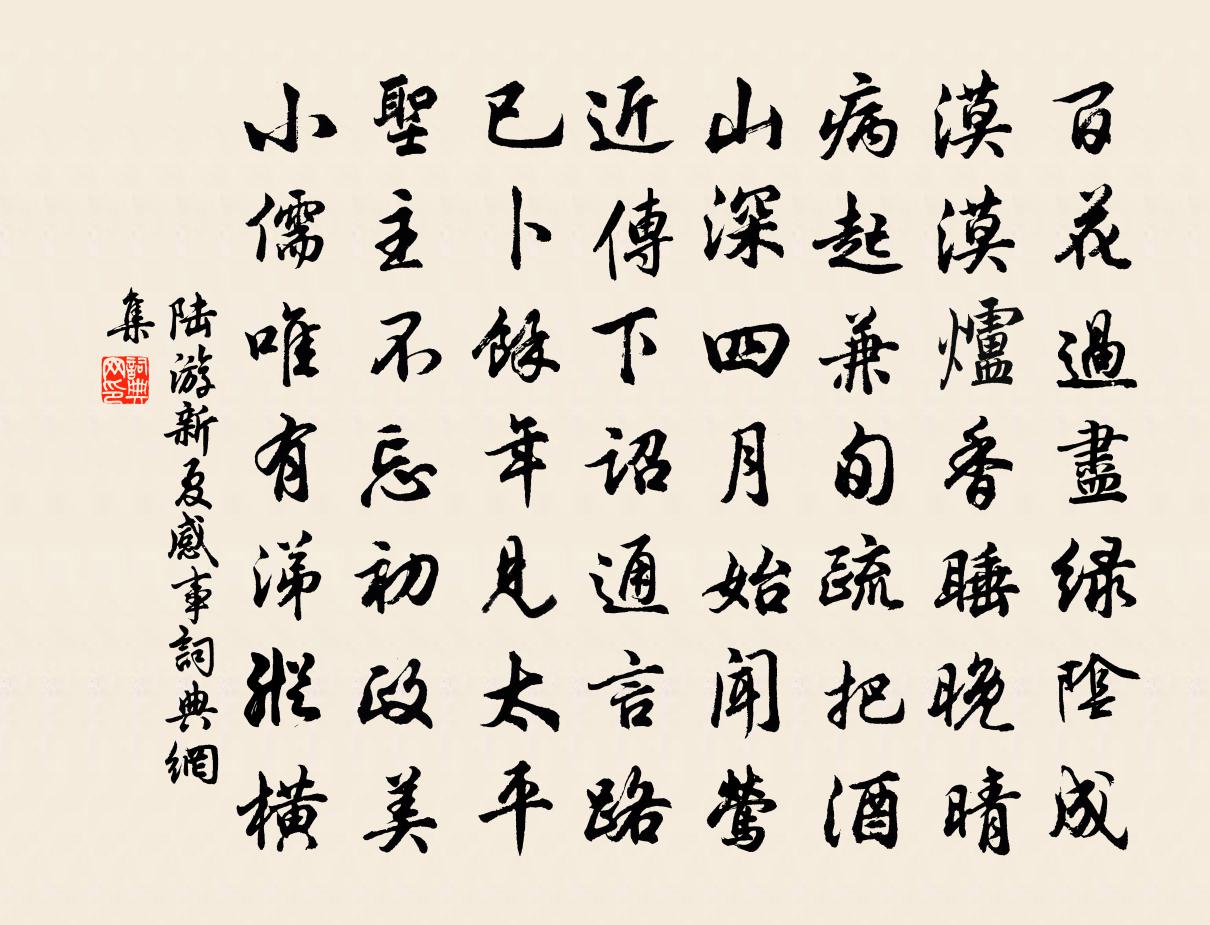 百花過盡綠陰成
漠漠爐香睡晚晴
病起兼旬疏把酒
山深四月始聞鶯
近傳下詔通言路
已卜餘年見太平
聖主不忘初政美
小儒唯有涕縱橫
陸游新夏感事詞典網
集
詞典网印